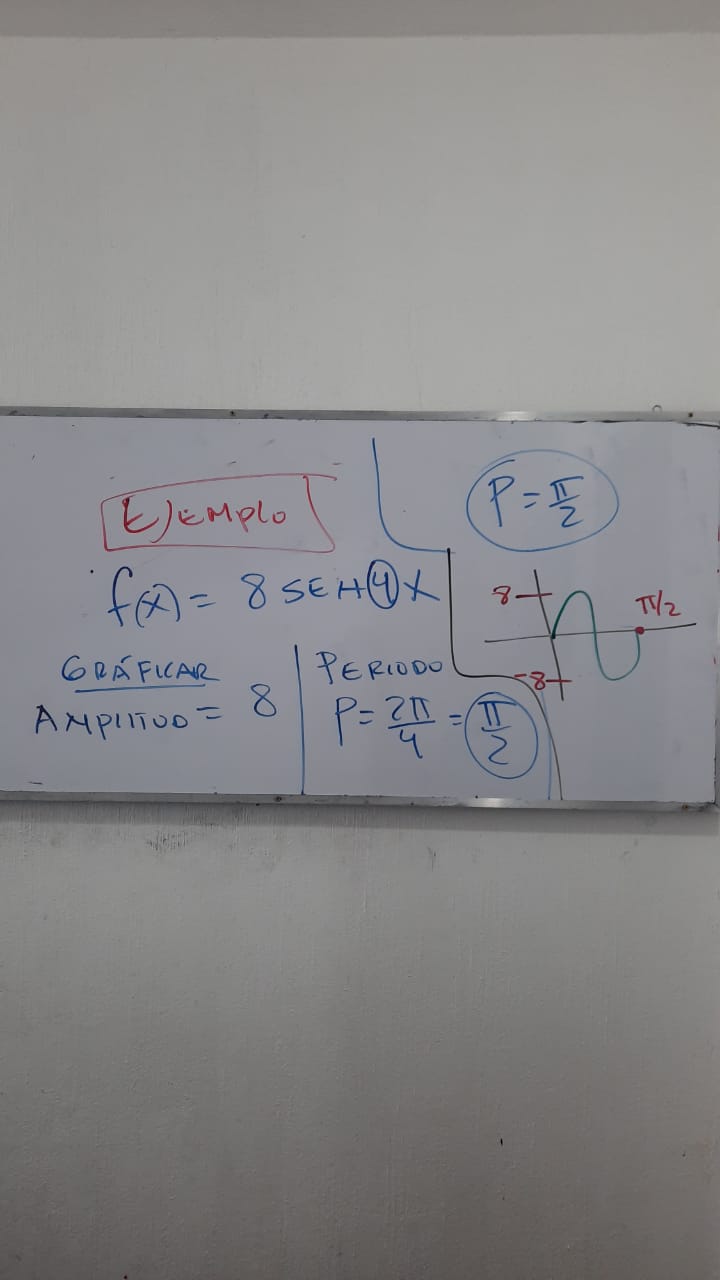 EJEMPLO
f(x) = 8 SEN 4 X
GRÁFICAR
AMPLITUD = 8
PERIODO
P = 2π/4 = π/2
P = π/2
8
π/2
-8